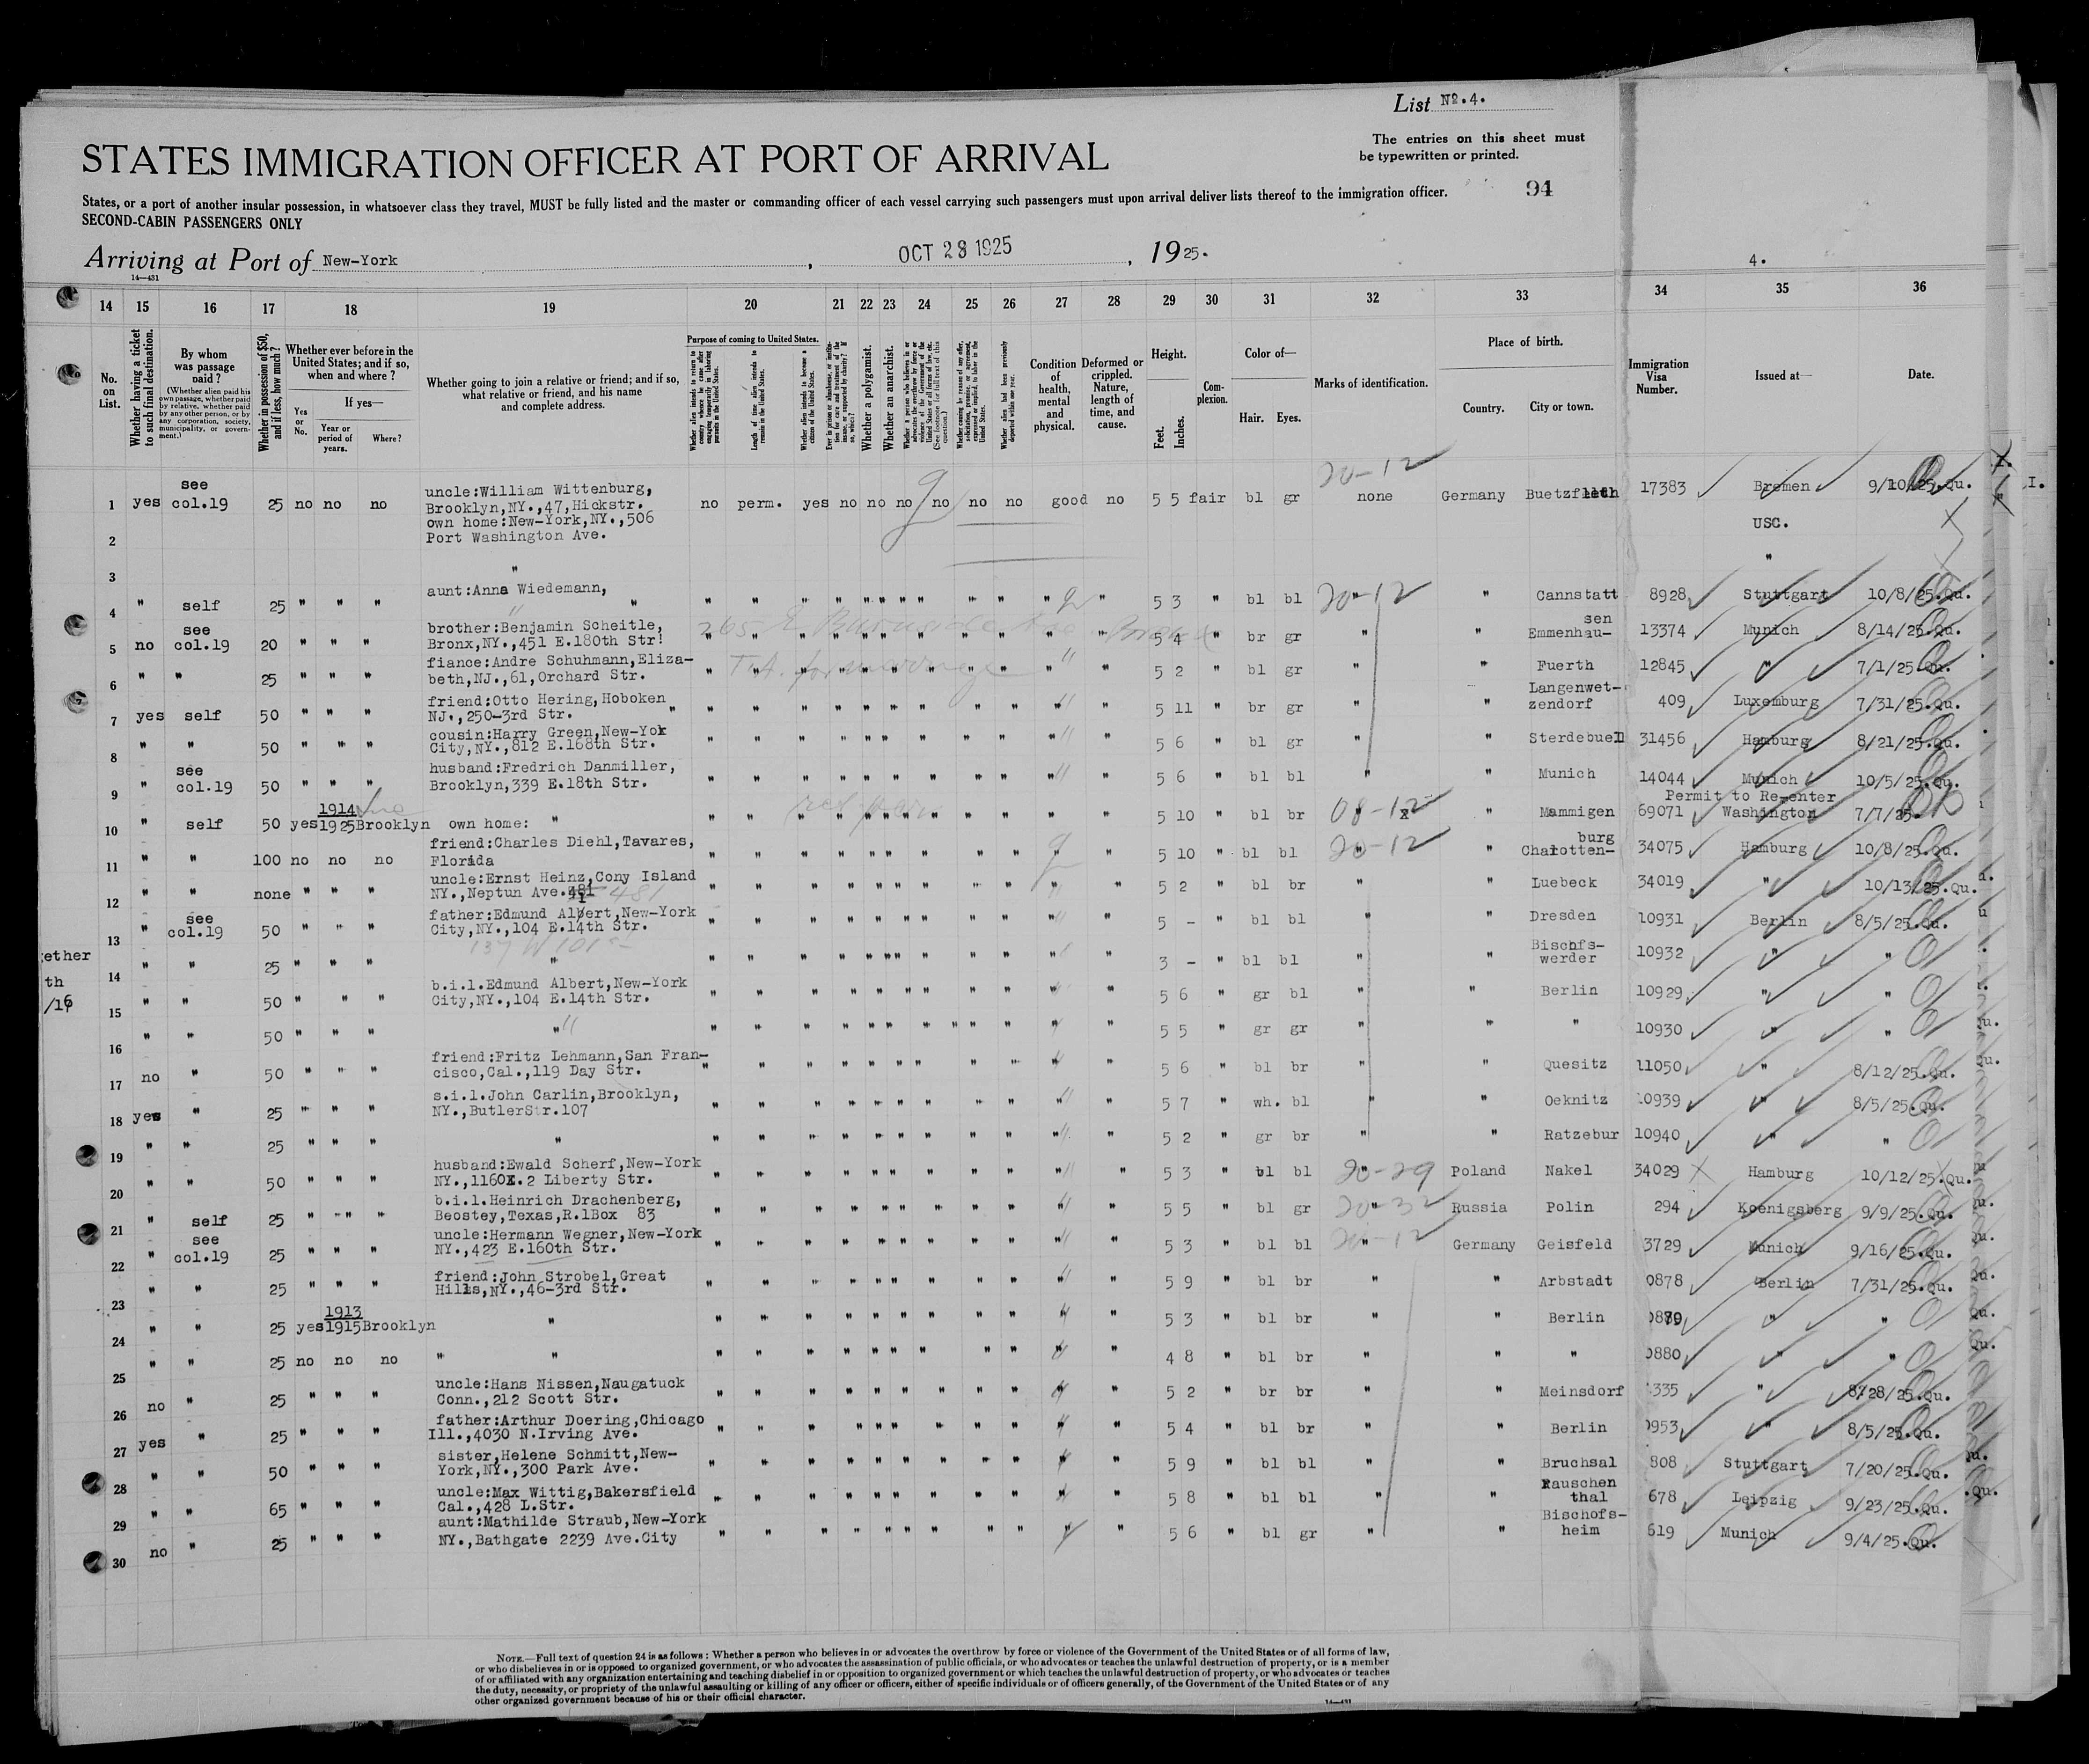 List No.4.
The entries on this sheet must
be typewritten or printed.
STATES IMMIGRATION OFFICER AT PORT OF ARRIVAL
94
States, or a port of another insular possession, in whatsoever class they travel, MUST be fully listed and the master or commanding officer of each vessel carrying such passengers must upon arrival deliver lists thereof to the immigration officer.
SECOND-CABIN PASSENGERS ONLY
Arriving at Port of New-York, OCT 28 1925, 1925.
14—431
4.
14 15 16 17 18 19 20 21 22 23 24 25 26 27 28 29 30 31 32 33 34 35 36
No. on List.
Whether having a ticket to such final destination.
By whom was passage paid?
(Whether alien paid his own passage, whether paid by relative, whether paid by any other person, or by any corporation, society, municipality, or government.)
Whether in possession of $50, and if less, how much?
Whether ever before in the United States; and if so, when and where?
Yes or No.
If yes—
Year or period of years.
Where?
Whether going to join a relative or friend; and if so, what relative or friend, and his name and complete address.
Purpose of coming to United States.
Length of time alien intends to remain in the United States.
Whether alien intends to become a citizen of the United States.
Whether a polygamist.
Whether an anarchist.
Condition of health, mental and physical.
Deformed or crippled. Nature, length of time, and cause.
Height.
Feet. Inches.
Complexion.
Color of—
Hair. Eyes.
Marks of identification.
Place of birth.
Country. City or town.
Immigration Visa Number.
Issued at—
Date.
20-12
1 yes see col.19 25 no no no uncle:William Wittenburg, Brooklyn,NY.,47,Hickstr. no perm. yes no no no no no no good no 5 5 fair bl gr none Germany 17383 Bremen 9/10/25.Qu.
2 own home:New-York,NY.,506 Port Washington Ave. USC.
3 " "
4 " self 25 " " " aunt:Anna Wiedemann, " " " " " " " " " " " " 5 3 " bl bl 20-12 " Cannstatt 8928 Stuttgart 10/8/25.Qu.
265 E Burnside Ave Bronx
5 no see col.19 20 " " " brother:Benjamin Scheitle, Bronx,NY.,451 E.180th Str. " " " " " " " " " " " 5 4 " br gr " " Emmenhausen 13374 Munich 8/14/25.Qu.
6 " " 25 " " " fiance:Andre Schuhmann,Elizabeth,NJ.,61,Orchard Str. " " " " " " " " " " " 5 2 " bl gr " " Fuerth 12845 " 7/1/25.Qu.
7 yes self 50 " " " friend:Otto Hering,Hoboken NJ.,250-3rd Str. " " " " " " " " " " " 5 11 " br gr " " Langenwetzendorf 409 Luxemburg 7/31/25.Qu.
8 " " 50 " " " cousin:Harry Green,New-Yok City,NY.,812 E.168th Str. " " " " " " " " " " " 5 6 " bl gr " " Sterdebuell 31456 Hamburg 8/21/25.Qu.
9 " see col.19 50 " " " husband:Fredrich Danmiller, Brooklyn,339 E.18th Str. " " " " " " " " " " " 5 6 " bl bl " " Munich 14044 Munich 10/5/25.Qu.
10 " self 50 yes 1914 1925 Brooklyn own home: " " " " " " " " " " " " 5 10 " bl br 08-12 " Mammigen 69071 Permit to Re-enter Washington 7/7/25.
11 " " 100 no no no friend:Charles Diehl,Tavares, Florida " " " " " " " " " " " 5 10 " bl bl 20-12 " Charlottenburg 34075 Hamburg 10/8/25.Qu.
12 " " none " " " uncle:Ernst Heinz,Cony Island NY.,Neptun Ave. 481 " " " " " " " " " " " 5 2 " bl br " " Luebeck 34019 " 10/13/25.Qu.
13 " see col.19 50 " " " father:Edmund Albert,New-York City,NY.,104 E.14th Str. " " " " " " " " " " " 5 - " bl bl " " Dresden 10931 Berlin 8/5/25.Qu.
137 W 101 st
gether
th
14 " " 25 " " " " " " " " " " " " " " " 3 - " bl bl " " Bischfs-werder 10932 " "
15 " " 50 " " " b.i.l.Edmund Albert,New-York City,NY.,104 E.14th Str. " " " " " " " " " " " 5 6 " gr bl " " Berlin 10929 " "
16 " " 50 " " " " " " " " " " " " " " " 5 5 " gr gr " " " 10930 " "
17 no " 50 " " " friend:Fritz Lehmann,San Francisco,Cal.,119 Day Str. " " " " " " " " " " " 5 6 " bl br " " Quesitz 11050 " 8/12/25.Qu.
18 yes " 25 " " " s.i.l.John Carlin,Brooklyn, NY.,ButlerStr.107 " " " " " " " " " " " 5 7 " wh. bl " " Oeknitz 10939 " 8/5/25.Qu.
19 " " 25 " " " " " " " " " " " " " " " 5 2 " gr br " " Ratzebur 10940 " "
20 " " 50 " " " husband:Ewald Scherf,New-York NY.,1160X.2 Liberty Str. " " " " " " " " " " " 5 3 " bl bl 20-29 Poland Nakel 34029 Hamburg 10/12/25.Qu.
21 " self 25 " " " b.i.l.Heinrich Drachenberg, Beostey,Texas,R.1Box 83 " " " " " " " " " " " 5 5 " bl gr 20-32 Russia Polin 294 Koenigsberg 9/9/25.Qu.
22 " see col.19 25 " " " uncle:Hermann Wegner,New-York NY.,423 E.160th Str. " " " " " " " " " " " 5 3 " bl bl 20-12 Germany Geisfeld 3729 Munich 9/16/25.Qu.
23 " " 25 " " " friend:John Strobel,Great Hills,NY.,46-3rd Str. " " " " " " " " " " " 5 9 " bl br " " Arbstadt 0878 Berlin 7/31/25.Qu.
24 " " 25 yes 1913 1915 Brooklyn " " " " " " " " " " " " 5 3 " bl br " " Berlin 0879 " "
25 " " 25 no no no " " " " " " " " " " " " " 4 8 " bl br " " " 0880 " "
26 no " 25 " " " uncle:Hans Nissen,Naugatuck Conn.,212 Scott Str. " " " " " " " " " " " 5 2 " br br " " Meinsdorf 335 " 8/28/25.Qu.
27 yes " 25 " " " father:Arthur Doering,Chicago Ill.,4030 N.Irving Ave. " " " " " " " " " " " 5 4 " bl br " " Berlin 0953 " 8/5/25.Qu.
28 " " 50 " " " sister,Helene Schmitt,New-York,NY.,300 Park Ave. " " " " " " " " " " " 5 9 " bl bl " " Bruchsal 808 Stuttgart 7/20/25.Qu.
29 " " 65 " " " uncle:Max Wittig,Bakersfield Cal.,428 L.Str. " " " " " " " " " " " 5 8 " bl bl " " Rauschenthal 678 Leipzig 9/23/25.Qu.
30 no " 25 " " " aunt:Mathilde Straub,New-York NY.,Bathgate 2239 Ave.City " " " " " " " " " " " 5 6 " bl gr " " Bischofsheim 619 Munich 9/4/25.Qu.
NOTE.—Full text of question 24 is as follows: Whether a person who believes in or advocates the overthrow by force or violence of the Government of the United States or of all forms of law,
or who disbelieves in or is opposed to organized government, or who advocates the assassination of public officials, or who advocates or teaches the unlawful destruction of property, or is a member
of or affiliated with any organization entertaining and teaching disbelief in or opposition to organized government or which teaches the unlawful destruction of property, or who advocates or teaches
the duty, necessity, or propriety of the unlawful assaulting or killing of any officer or officers, either of specific individuals or of officers generally, of the Government of the United States or of any
other organized government because of his or their official character.
14—431